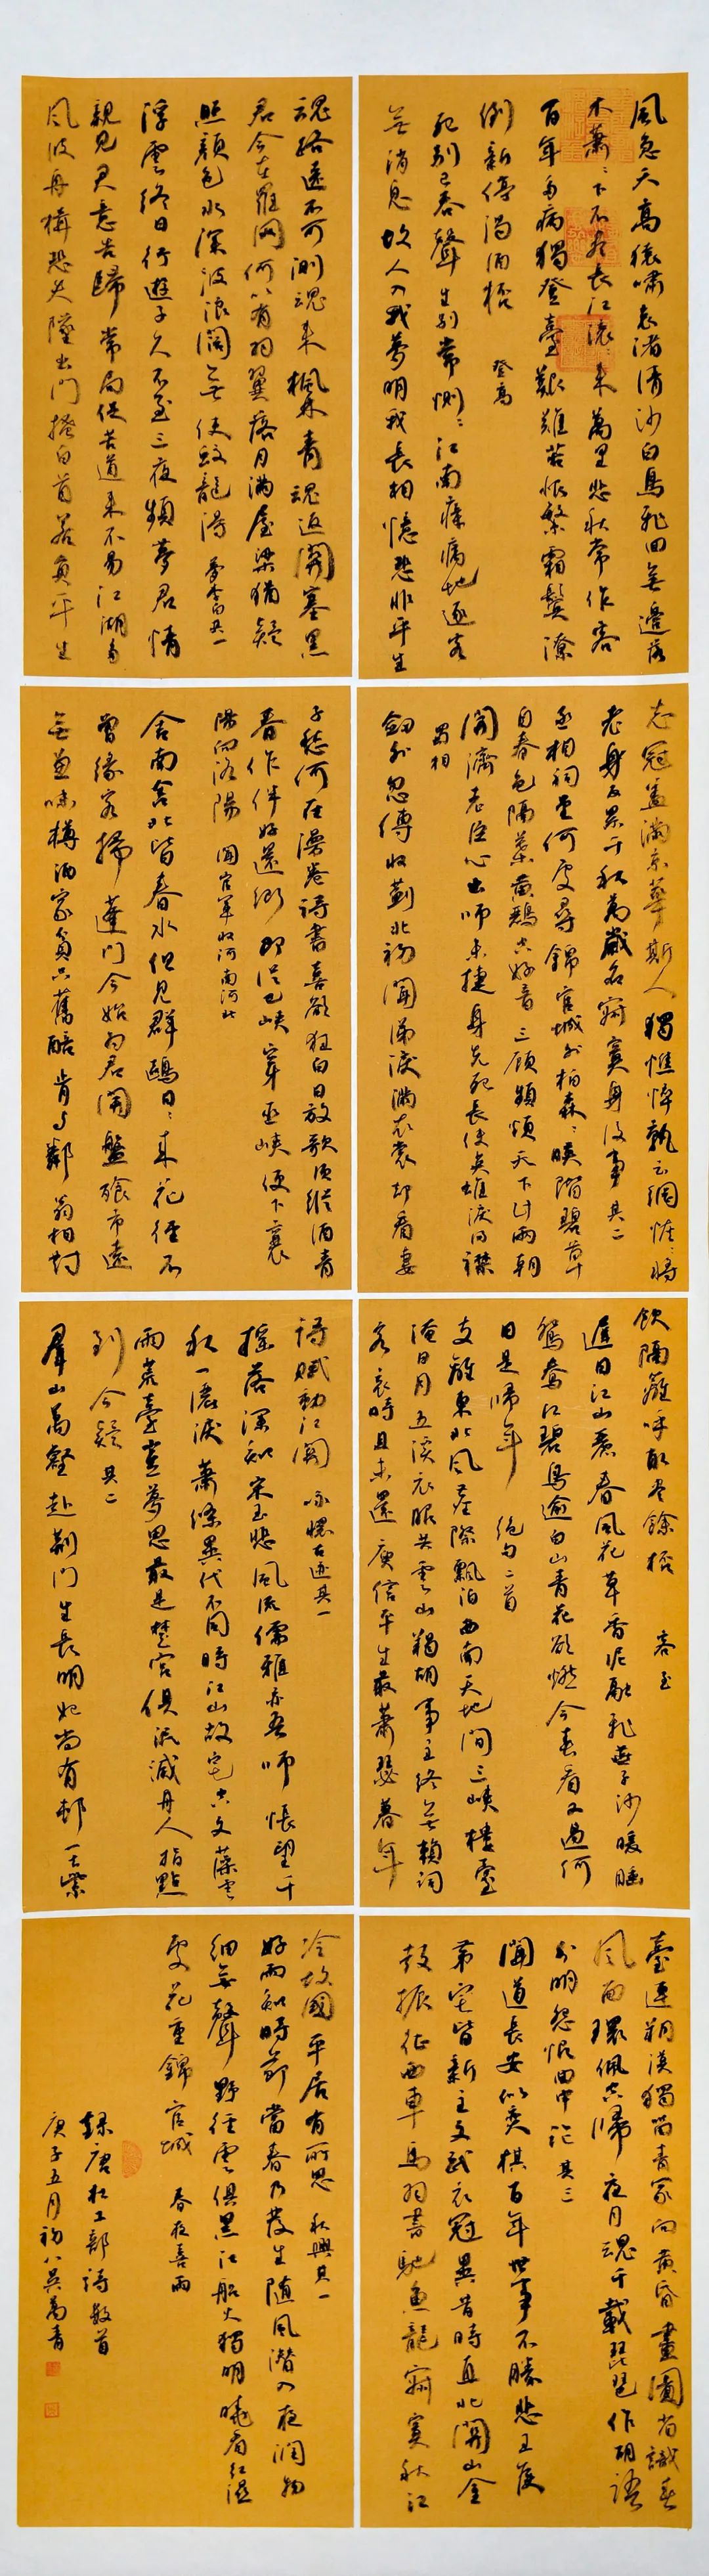 風急天高猿嘯哀渚清沙白鳥飛回無邊落
木蕭々下不盡長江滾々來萬里悲秋常作客
百年多病獨登臺艱難苦恨繁霜鬢潦
倒新停濁酒杯 登高
死別已吞聲生別常惻々江南瘴癘地逐客
無消息故人入我夢明我長相憶恐非平生
魂路遠不可測魂來楓林青魂返關塞黑
君今在羅網何以有羽翼落月滿屋梁猶疑
照顏色水深波浪闊無使蛟龍得 夢李白其一
浮雲終日行遊子久不至三夜頻夢君情
親見君意告歸常局促苦道來不易江湖多
風波舟楫恐失墜出門搔白首若負平生
志冠蓋滿京華斯人獨憔悴孰云網恢々將
老身反累千秋萬歲名寂寞身後事 其二
丞相祠堂何處尋錦官城外柏森々映階碧草
自春色隔葉黃鸝空好音三顧頻煩天下計兩朝
開濟老臣心出師未捷身先死長使英雄淚滿襟
蜀相
劍外忽傳收薊北初聞涕淚滿衣裳卻看妻
子愁何在漫卷詩書喜欲狂白日放歌須縱酒青
春作伴好還鄉即從巴峽穿巫峽便下襄
陽向洛陽 聞官軍收河南河北
舍南舍北皆春水但見群鷗日々來花徑不
曾緣客掃蓬門今始為君開盤飧市遠
無兼味樽酒家貧只舊醅肯與鄰翁相對
飲隔籬呼取盡餘杯 客至
遲日江山麗春風花草香泥融飛燕子沙暖睡
鴛鴦江碧鳥逾白山青花欲燃今春看又過何
日是歸年 絕句二首
支離東北風塵際飄泊西南天地間三峽樓臺
淹日月五溪衣服共雲山羯胡事主終無賴詞
客哀時且未還庾信平生最蕭瑟暮年
詩賦動江關 詠懷古迹其一
搖落深知宋玉悲風流儒雅亦吾師悵望千
秋一灑淚蕭條異代不同時江山故宅空文藻雲
雨荒臺豈夢思最是楚宮俱泯滅舟人指點
到今疑 其二
群山萬壑赴荊門生長明妃尚有村一去紫
臺連朔漠獨留青冢向黃昏畫圖省識春
風面環佩空歸夜月魂千載琵琶作胡語
分明怨恨曲中論 其三
聞道長安似奕棋百年世事不勝悲王侯
第宅皆新主文武衣冠異昔時直北關山金
鼓振征西車馬羽書馳魚龍寂寞秋江
冷故國平居有所思 秋興其一
好雨知時節當春乃發生隨風潛入夜潤物
細無聲野徑雲俱黑江船火獨明曉看紅濕
處花重錦官城 春夜喜雨
錄唐杜工部詩數首
庚子五月初八吳萬青